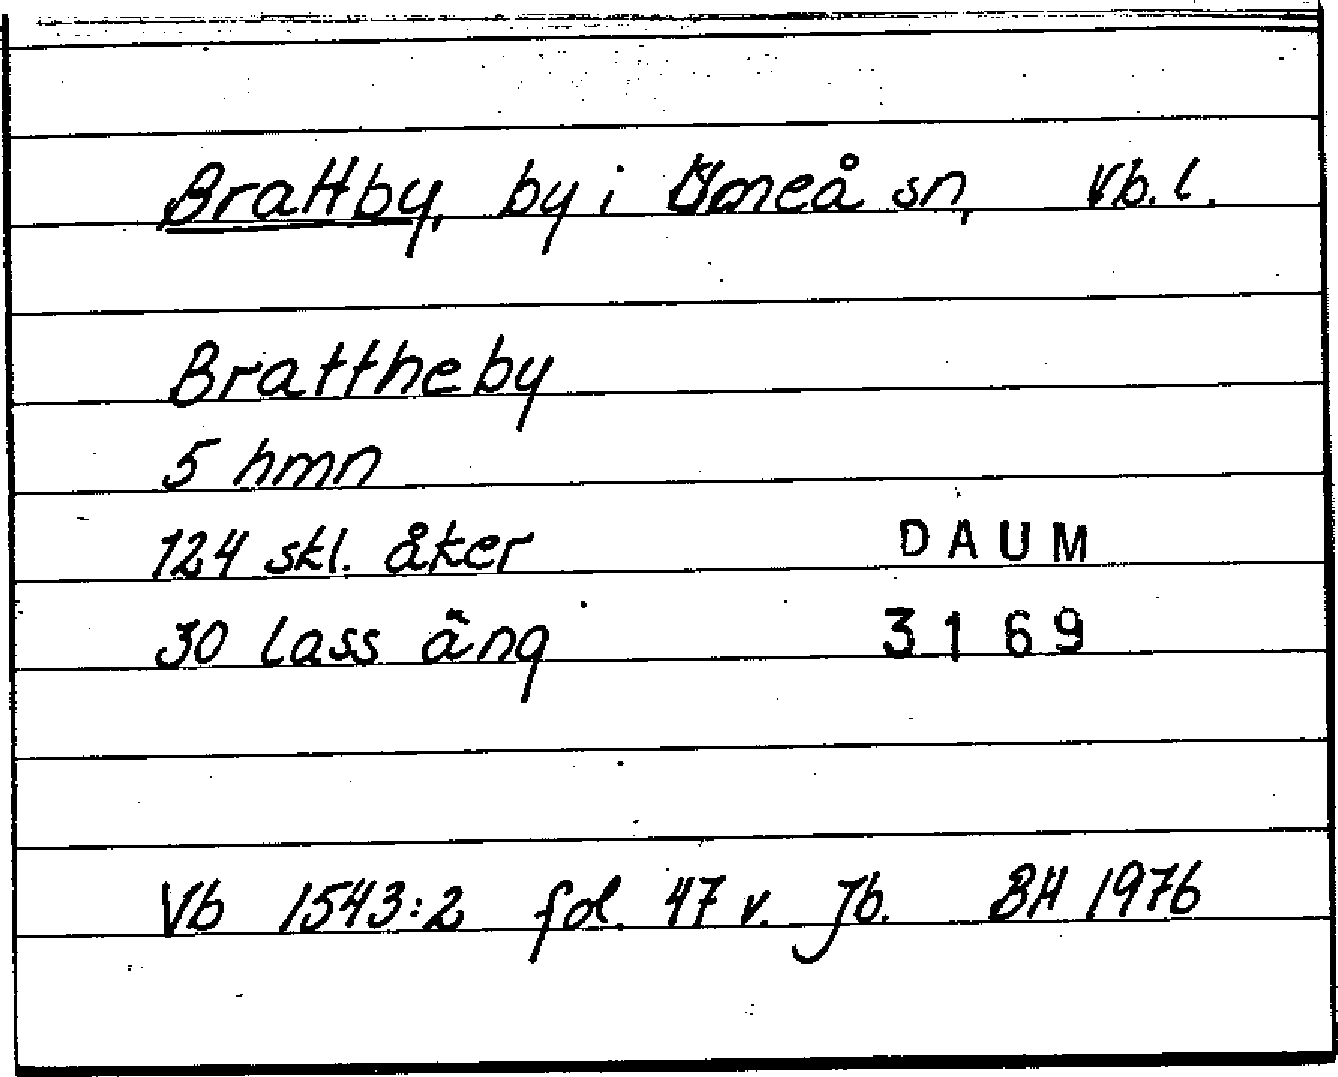 Brattby, by i Umeå sn, Vb. l.
Brattheby
5 hmn
124 skl. åker DAUM
30 lass äng 3169
Vb 1543:2 fol. 47 v. Jb. BH 1976